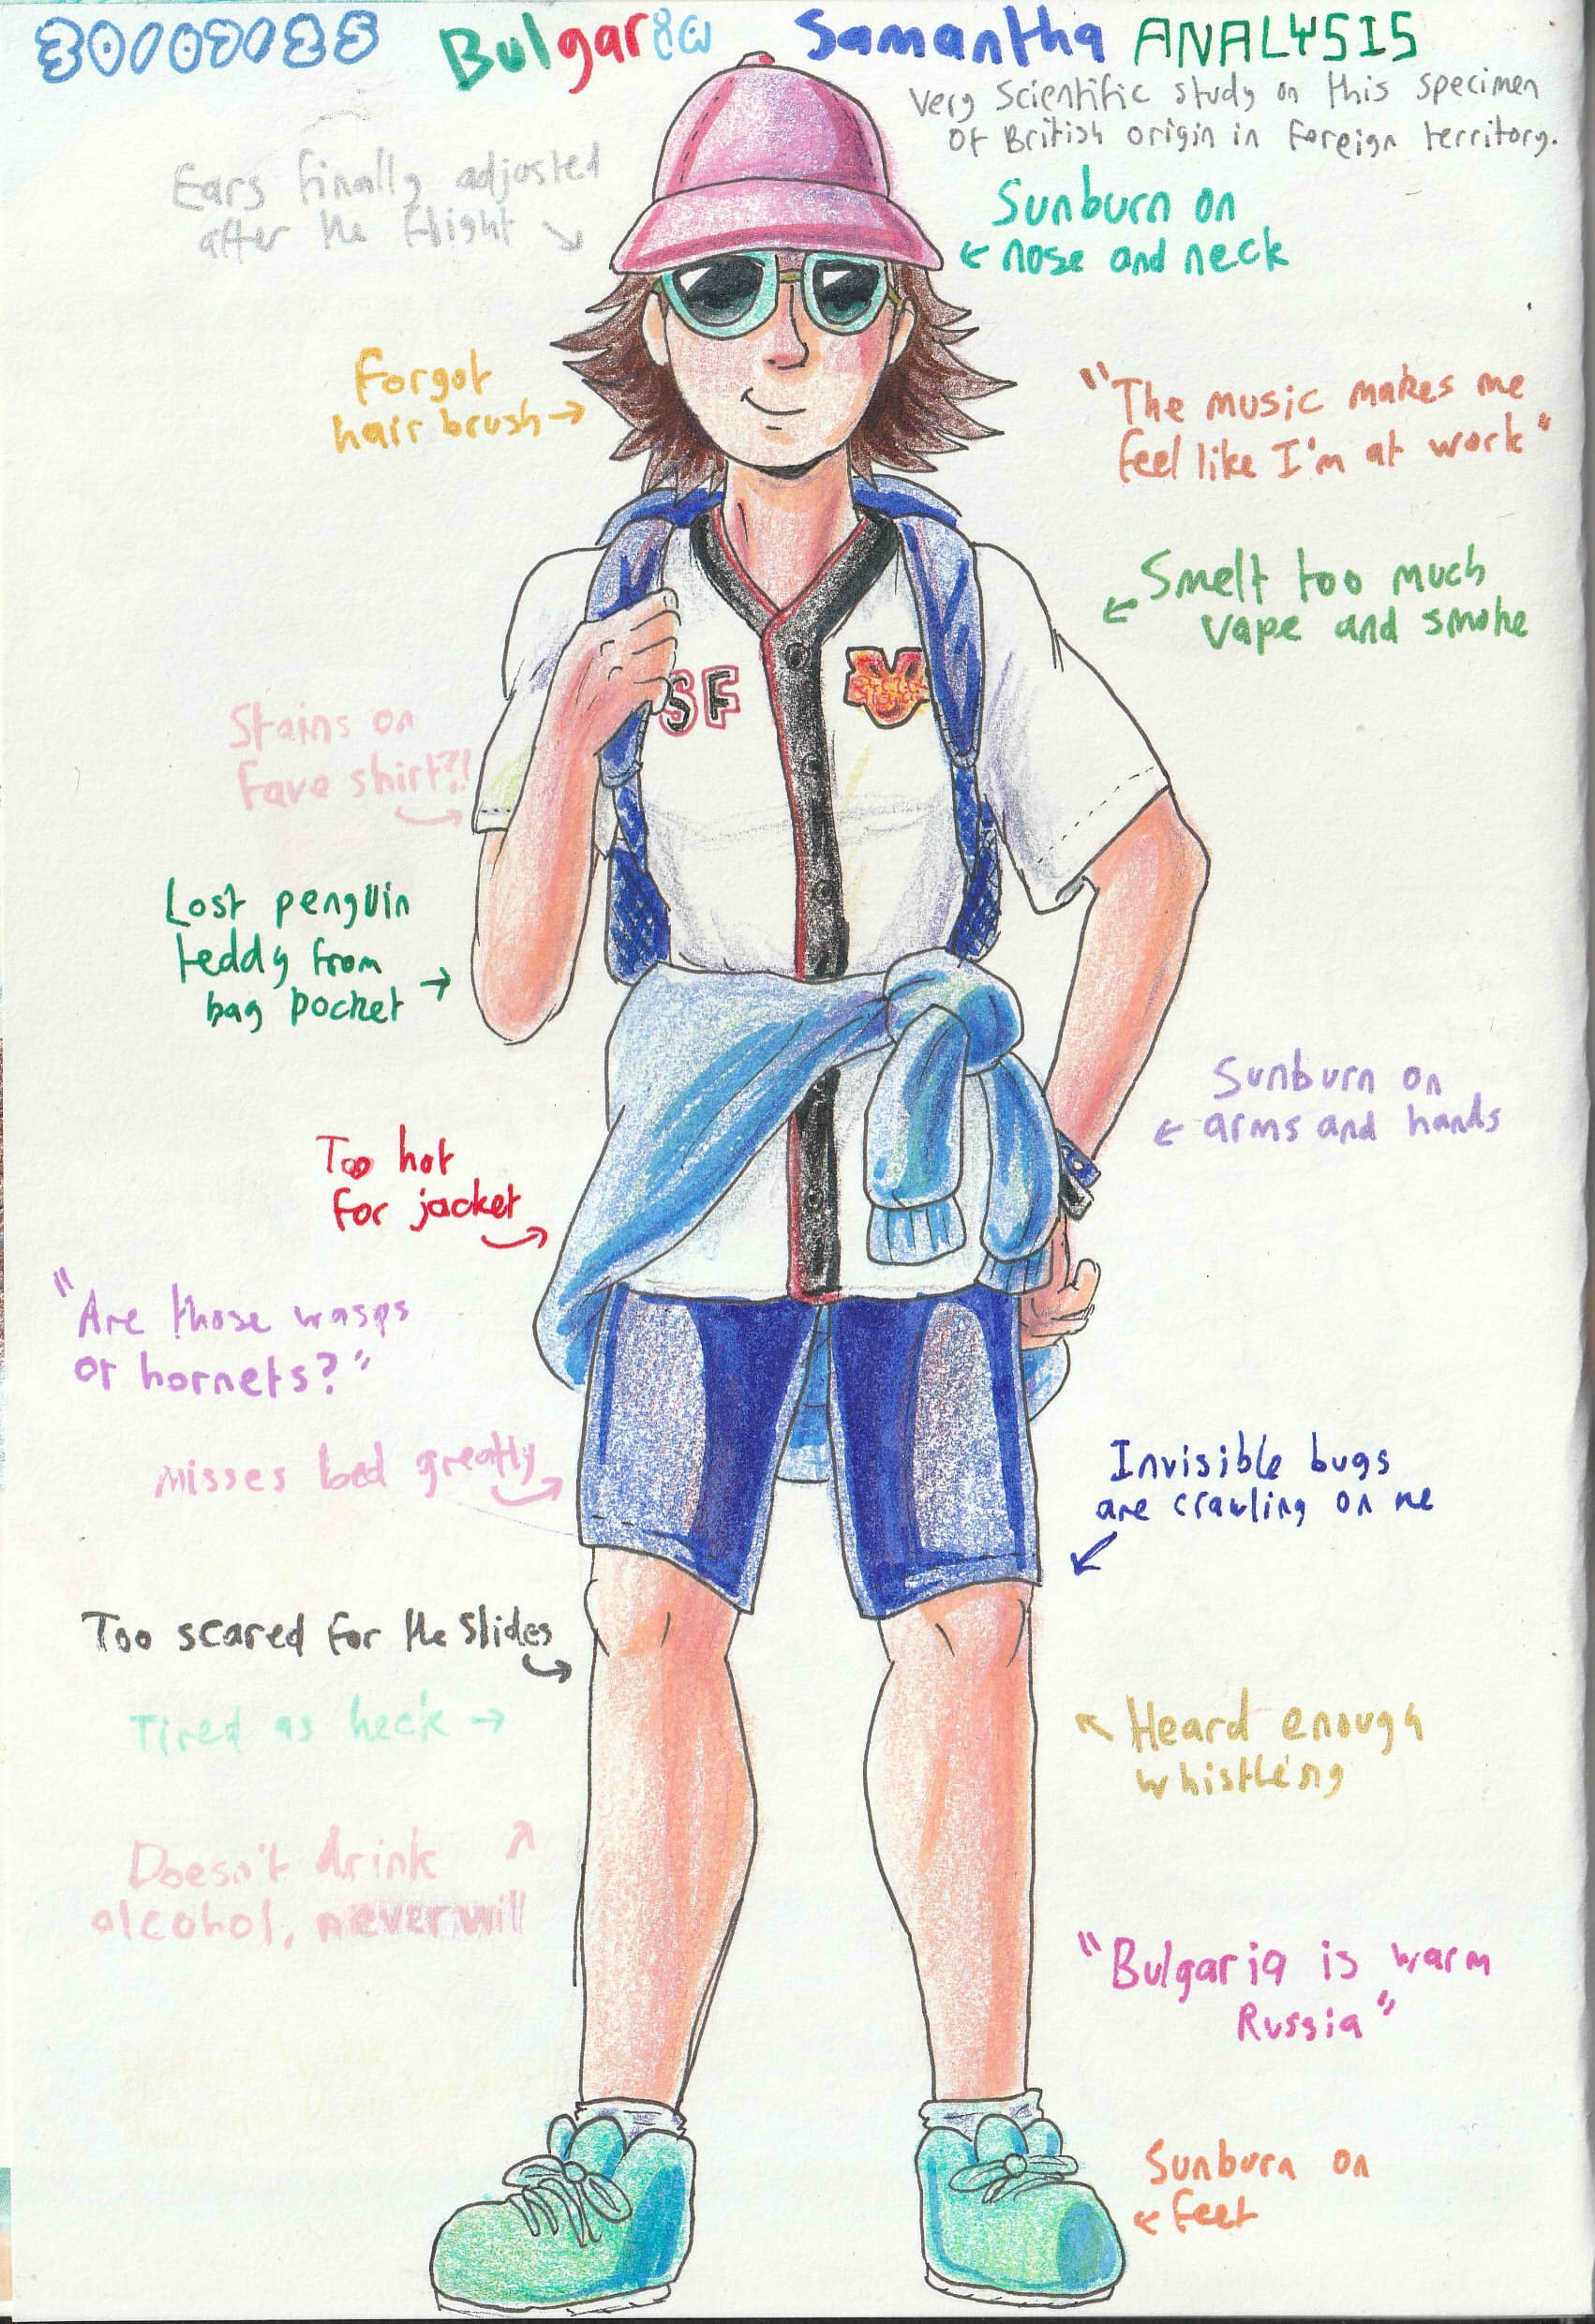 30/07/25 Bulgaria Samantha ANALYSIS
Very Scientific study on this specimen
of British origin in foreign territory.
Ears finally adjusted
after the flight
Sunburn on
nose and neck
Forgot
hair brush
"The music makes me
feel like I'm at work"
Smelt too much
vape and smoke
SF
Stains on
fave shirt?!
Lost penguin
teddy from
bag pocket
Sunburn on
arms and hands
Too hot
for jacket
"Are those wasps
or hornets?"
Misses bed greatly
Invisible bugs
are crawling on me
Too scared for the slides
Tired as heck
Heard enough
whistling
Doesn't drink
alcohol, never will
"Bulgaria is warm
Russia"
Sunburn on
feet